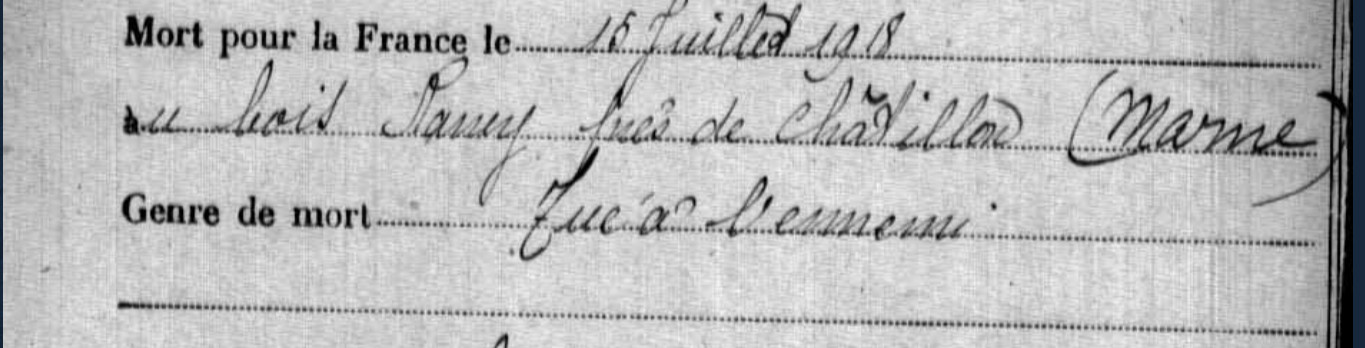 Mort pour la France le 15 Juillet 1918
au bois près de Châtillon (Marne)
Genre de mort Tué à l'ennemi